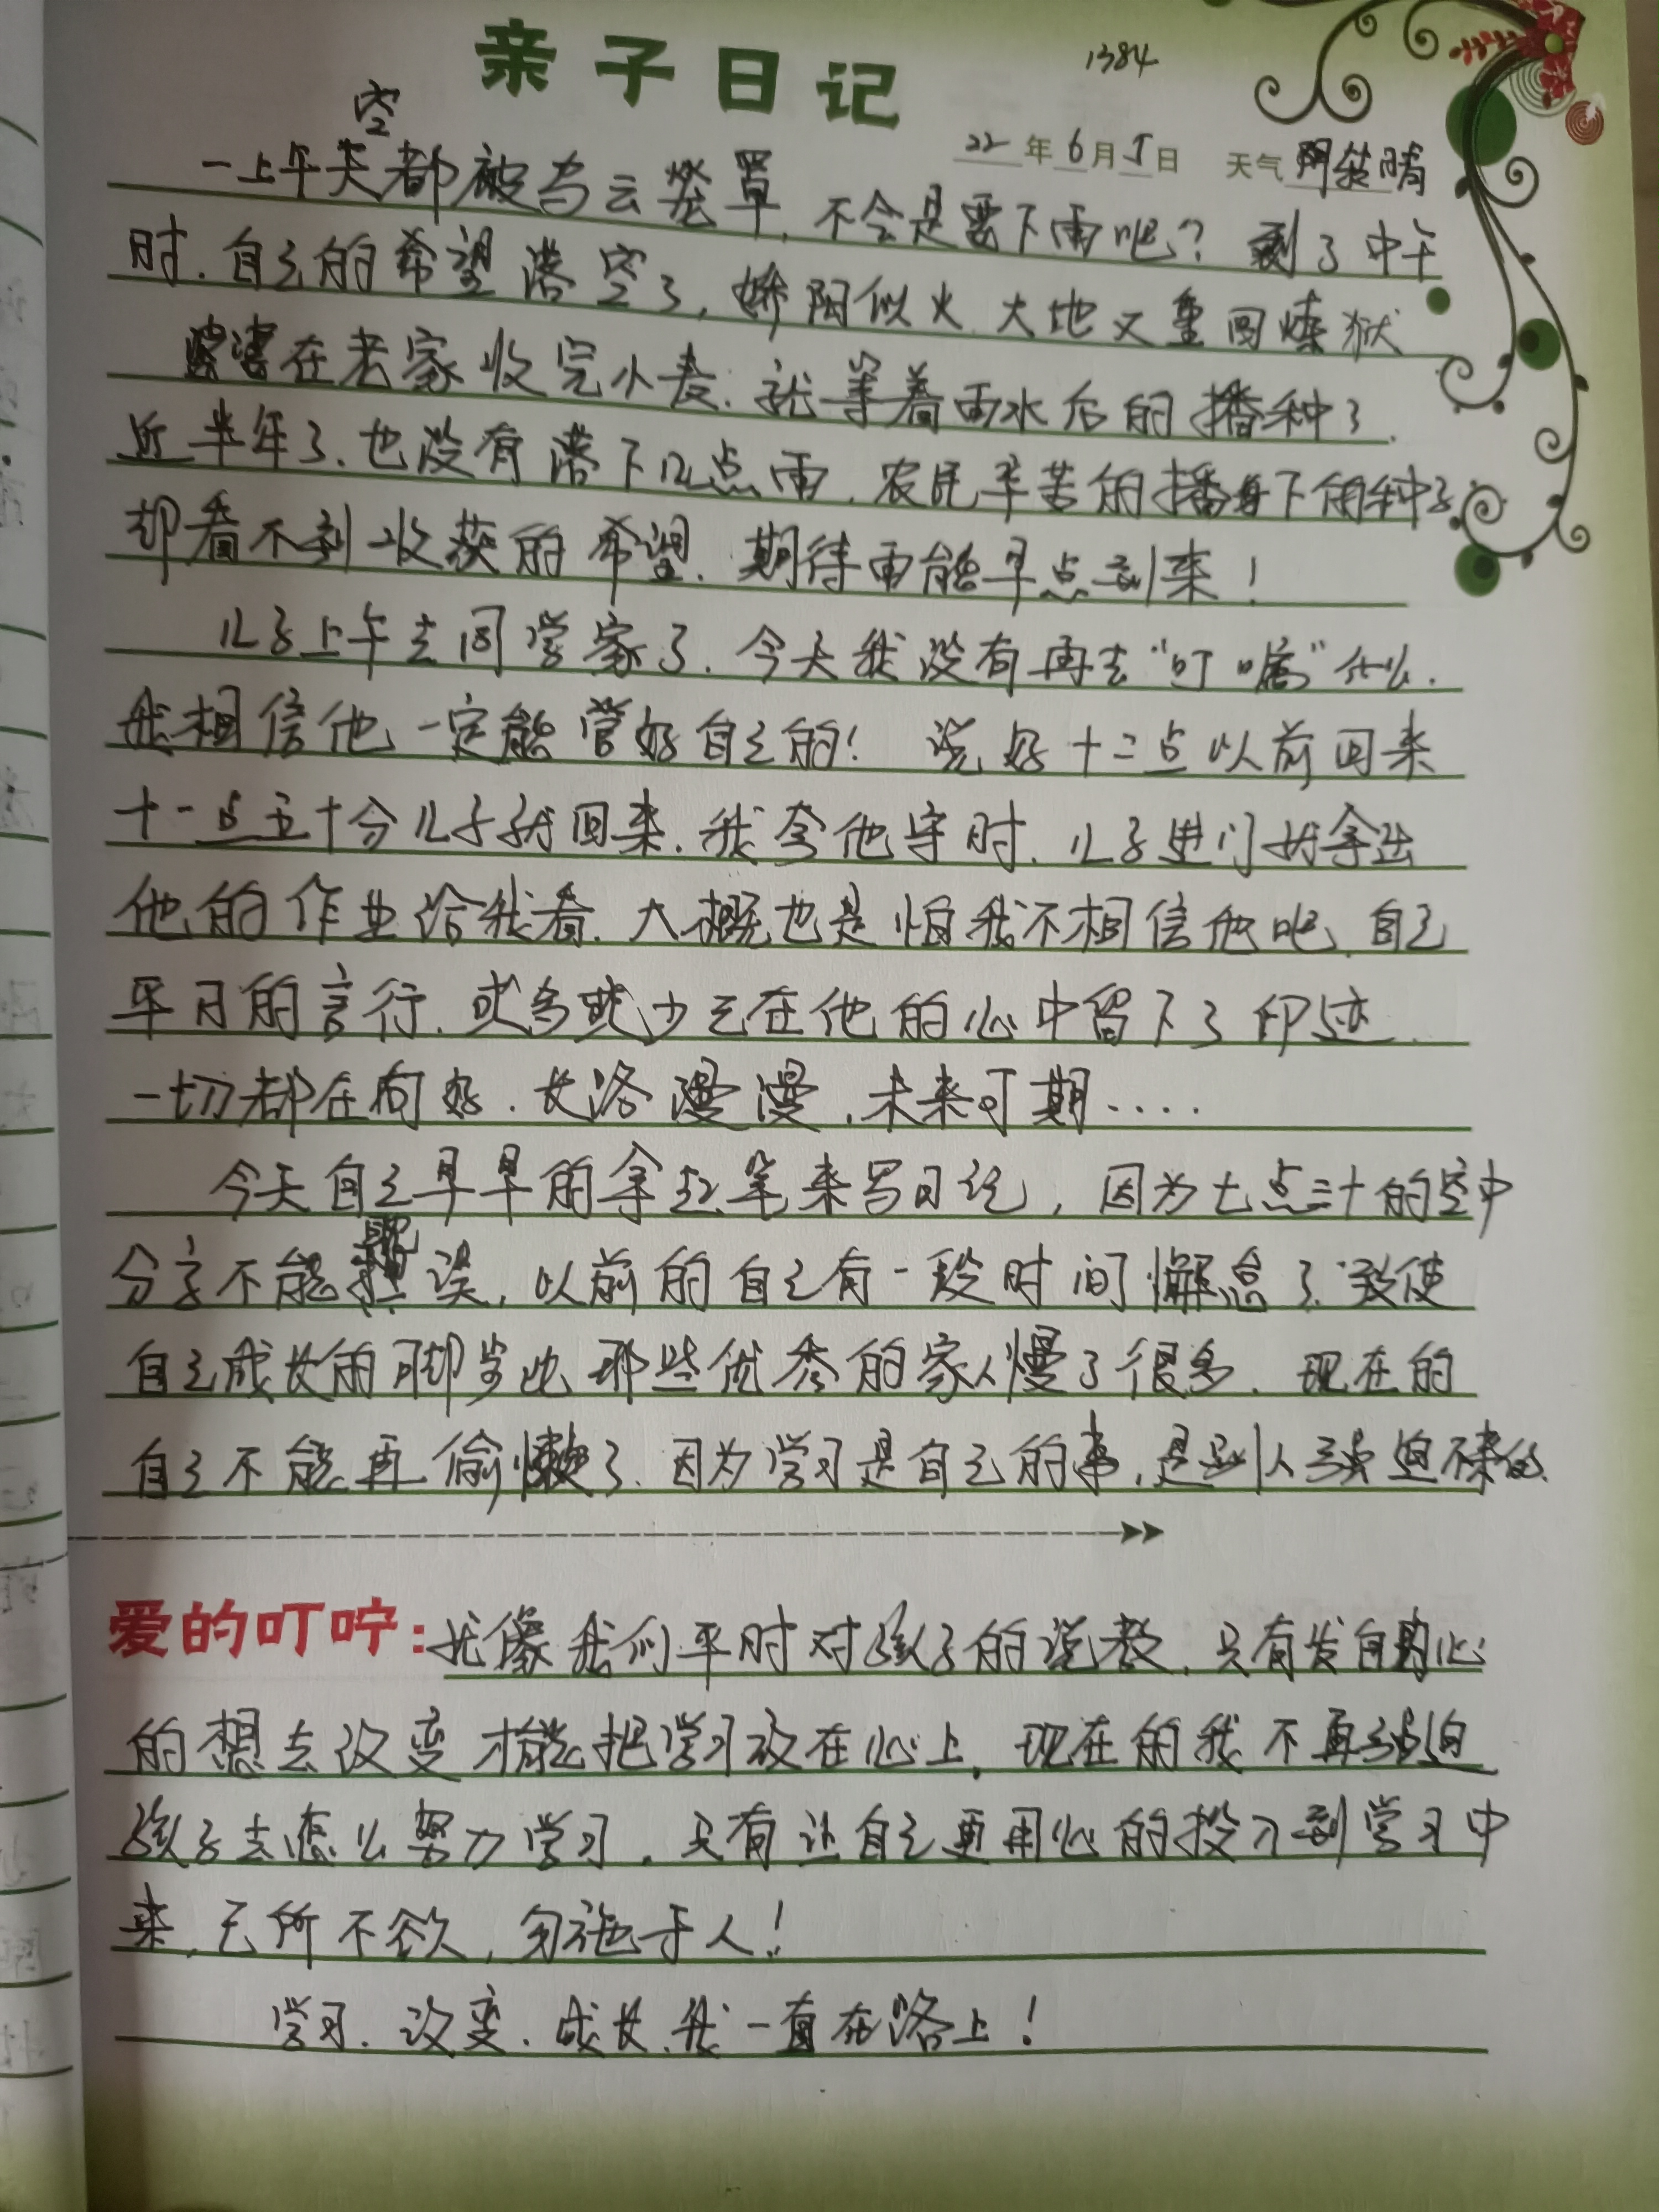 亲子日记
1384
22年6月5日 天气 阴转晴
一上午天空都被乌云笼罩,不会是要下雨吧?到了中午
时,自己的希望落空了,娇阳似火,大地又重回炼狱
婆婆在老家收完小麦,就等着雨水后的播种了.
近半年了,也没有落下几点雨,农民辛苦的播下的种子
却看不到收获的希望,期待雨能早点到来!
儿子上午去同学家了,今天我没有再去“叮嘱”什么.
我相信他一定能管好自己的!说好十二点以前回来
十一点五十分儿子就回来,我夸他守时,儿子进门就拿出
他的作业给我看,大概也是怕我不相信他吧,自己
平日的言行,或多或少已在他的心中留下了印迹.
一切都在向好,长路漫漫,未来可期....
今天自己早早的拿起笔来写日记,因为七点三十的空中
分享不能耽误,以前的自己有一段时间懈怠了,致使
自己成长的脚步比那些优秀的家人慢了很多,现在的
自己不能再偷懒了,因为学习是自己的事,是别人强迫不来的.
爱的叮咛:就像我们平时对孩子的说教,只有发自内心
的想去改变才能把学习放在心上,现在的我不再强迫
孩子去怎么努力学习,只有让自己更用心的投入到学习中
来,己所不欲,勿施于人!
学习,改变,成长,我一直在路上!